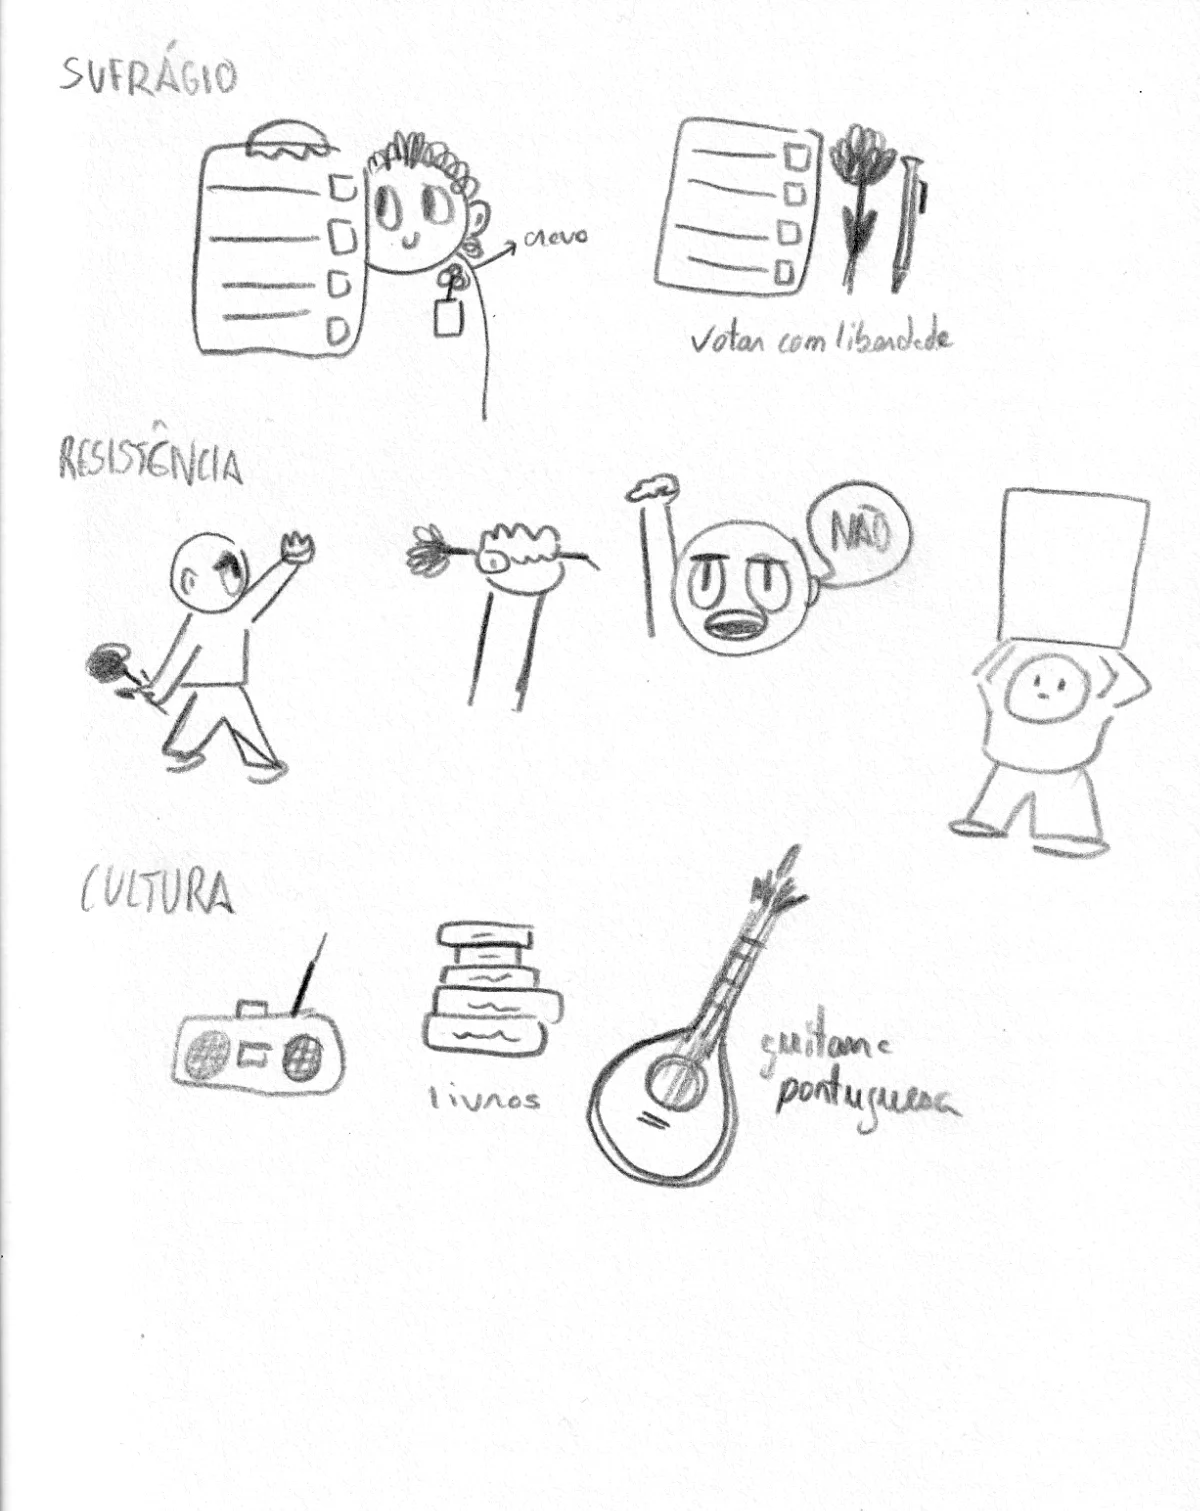 SUFRÁGIO
cravo
votar com liberdade
RESISTÊNCIA
NÃO
CULTURA
livros
guitarra
portuguesa